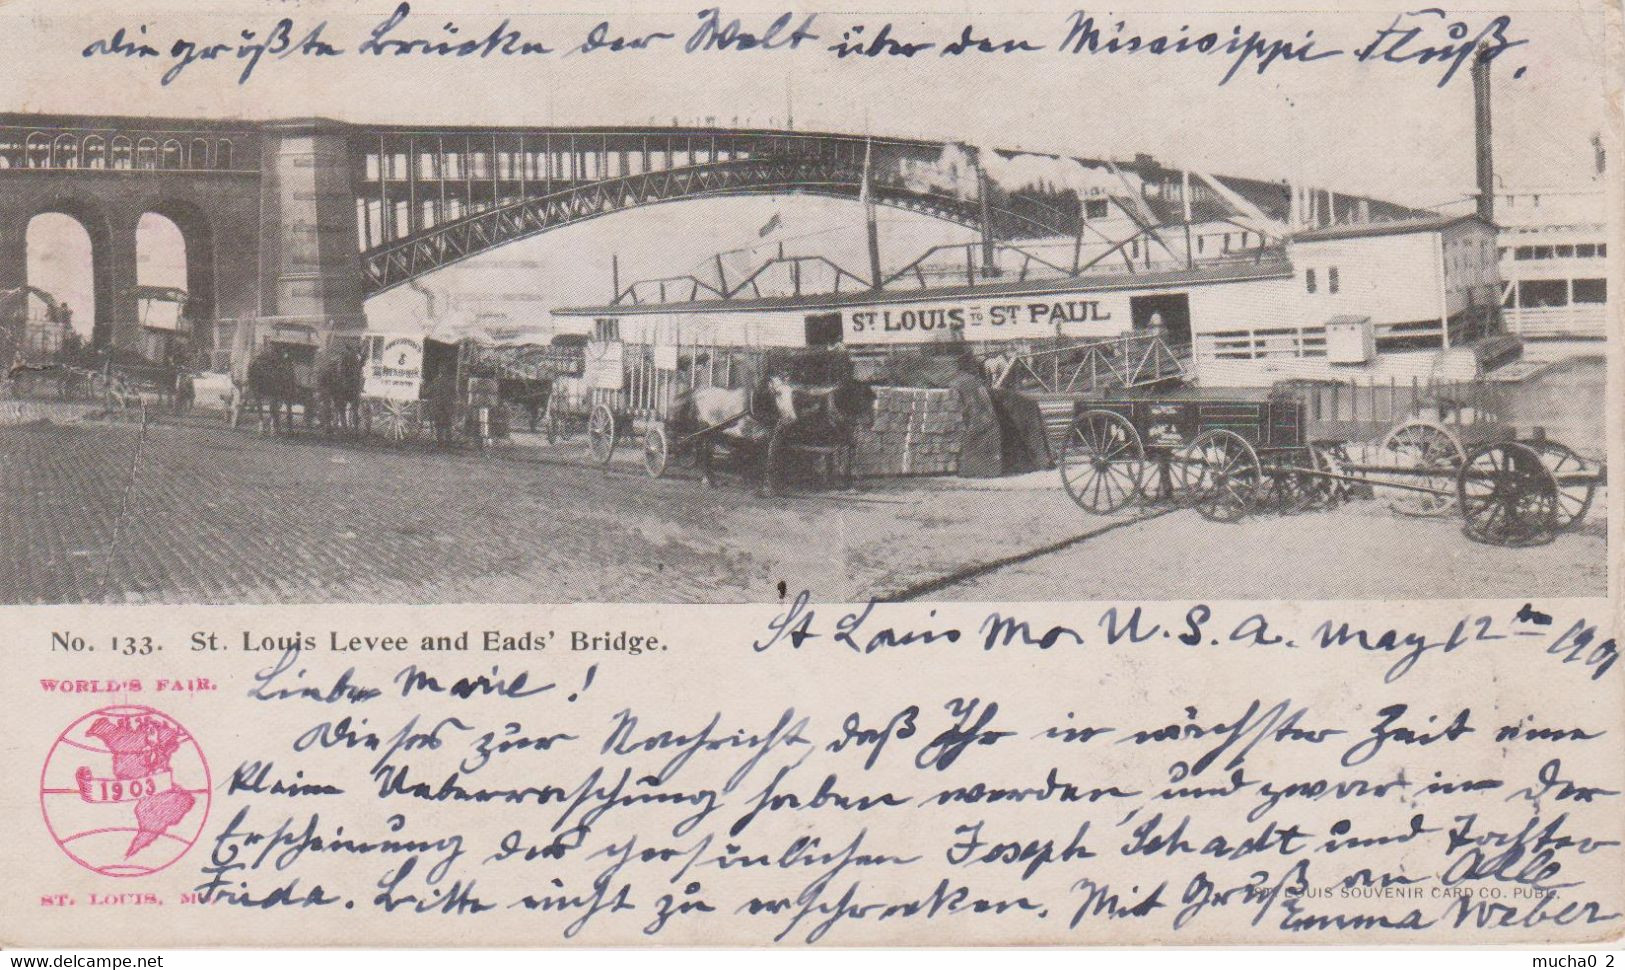 die größte Brücke der Welt über den Missisippi Fluß.
ST LOUIS TO ST PAUL
No. 133. St. Louis Levee and Eads' Bridge.
St Louis Mo. U.S.A. May 12th 1901
WORLD'S FAIR.
Liebe Marie!
Dieses zur Nachricht, daß Ihr in nächster Zeit eine
1903
kleine Ueberraschung haben werden, und zwar in der
Erscheinung des persönlichen Joseph Schadt und Tochter
ST. LOUIS, M
Frida. Bitte nicht zu erschrecken. Mit Gruß an Alle
ST. LOUIS SOUVENIR CARD CO. PUBL.
Emma Weber
www.delcampe.net
mucha0_2